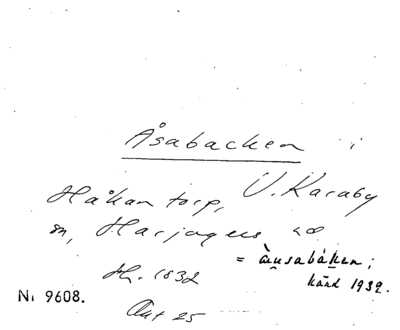 Åsabacken i
Håkantorp, V. Karaby
sn, Harjagers hd
= àusabáken;
känd 1932.
H. 1832
Akt 25
Nr 9608.